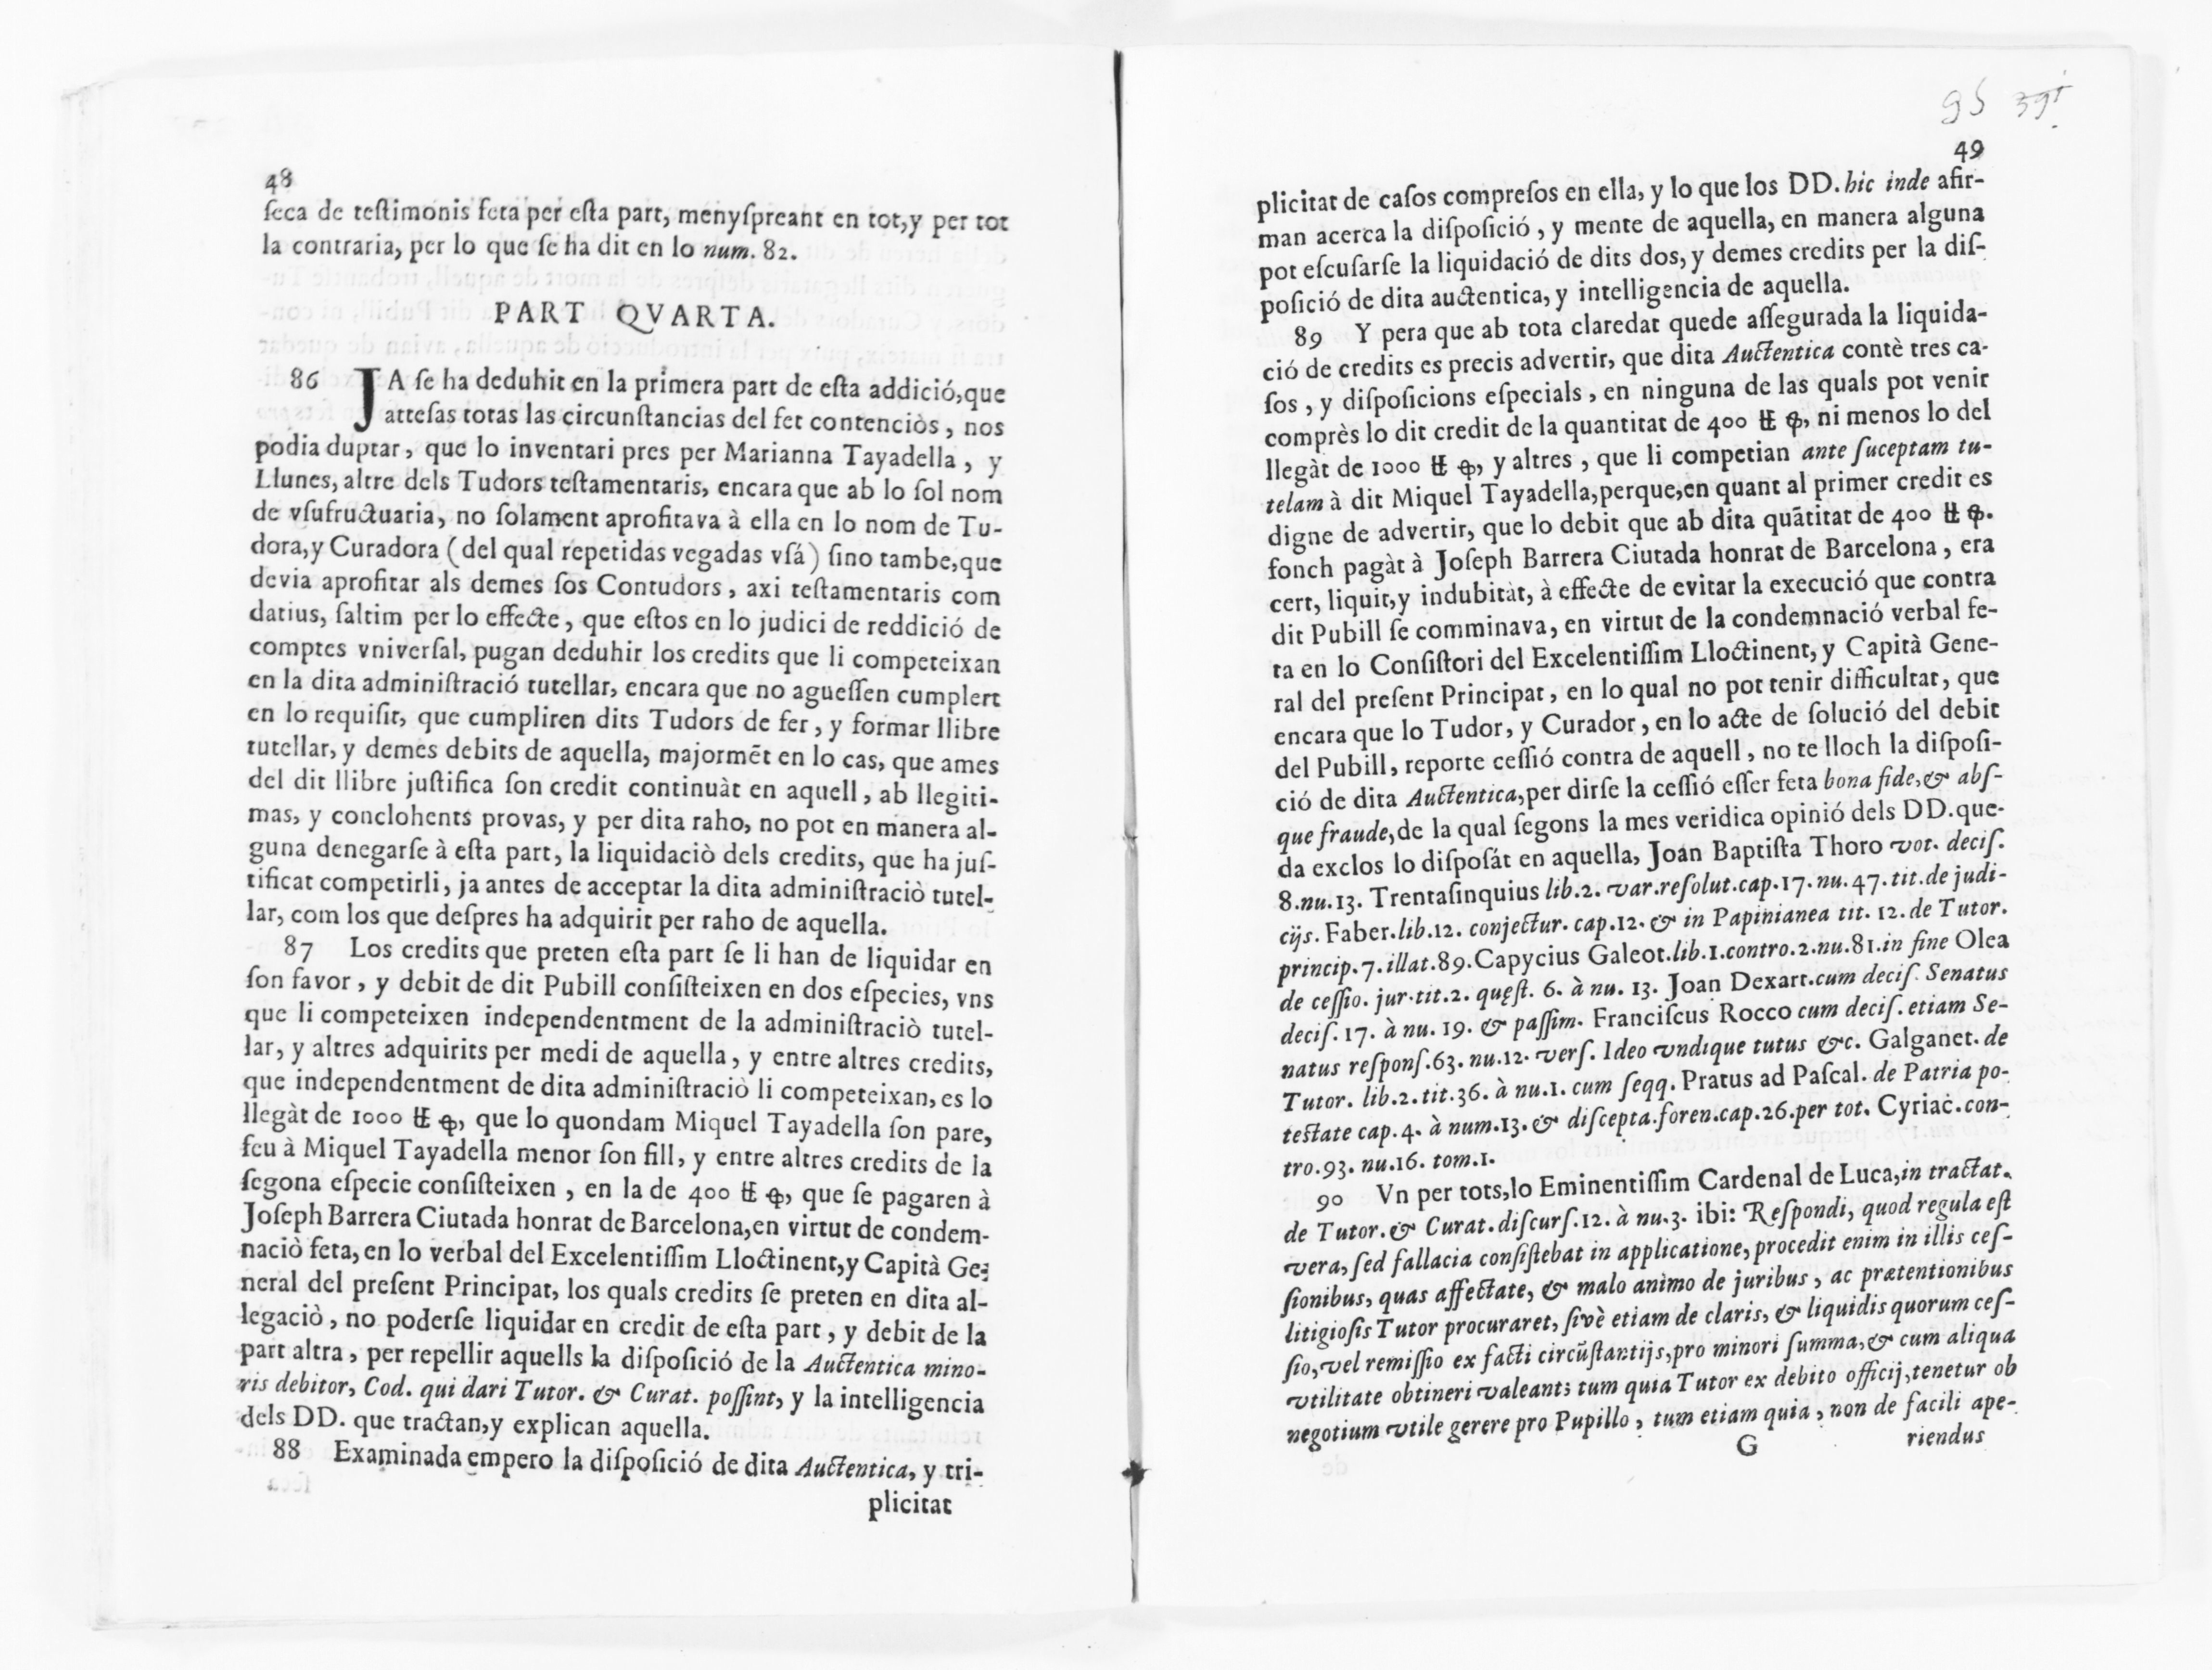 48
ſeca de teſtimonis feta per eſta part, menyſpreant en tot,y per tot
la contraria, per lo que ſe ha dit en lo num. 82.
PART QVARTA.
86 JA ſe ha deduhit en la primera part de eſta addició,que
atteſas totas las circunſtancias del fet contenciòs, nos
podia duptar, que lo inventari pres per Marianna Tayadella, y
Llunes, altre dels Tudors teſtamentaris, encara que ab lo ſol nom
de vſufructuaria, no ſolament aprofitava à ella en lo nom de Tu-
dora,y Curadora (del qual repetidas vegadas vſá) ſino tambe,que
devia aprofitar als demes ſos Contudors, axi teſtamentaris com
datius, ſaltim per lo effecte, que eſtos en lo judici de reddició de
comptes vniverſal, pugan deduhir los credits que li competeixan
en la dita adminiſtració tutellar, encara que no agueſſen cumplert
en lo requiſit, que cumpliren dits Tudors de fer, y formar llibre
tutellar, y demes debits de aquella, majormēt en lo cas, que ames
del dit llibre juſtifica ſon credit continuàt en aquell, ab llegiti-
mas, y conclohents provas, y per dita raho, no pot en manera al-
guna denegarſe à eſta part, la liquidaciò dels credits, que ha juſ-
tificat competirli, ja antes de acceptar la dita adminiſtraciò tutel-
lar, com los que deſpres ha adquirit per raho de aquella.
87 Los credits que preten eſta part ſe li han de liquidar en
ſon favor, y debit de dit Pubill conſiſteixen en dos eſpecies, vns
que li competeixen independentment de la adminiſtraciò tutel-
lar, y altres adquirits per medi de aquella, y entre altres credits,
que independentment de dita adminiſtraciò li competeixan, es lo
llegàt de 1000 ₶ ꝕ, que lo quondam Miquel Tayadella ſon pare,
feu à Miquel Tayadella menor ſon fill, y entre altres credits de la
ſegona eſpecie conſiſteixen, en la de 400 ₶ ꝕ, que ſe pagaren à
Joſeph Barrera Ciutada honrat de Barcelona,en virtut de condem-
naciò feta, en lo verbal del Excelentiſſim Lloctinent,y Capità Ge-
neral del preſent Principat, los quals credits ſe preten en dita al-
legaciò, no poderſe liquidar en credit de eſta part, y debit de la
part altra, per repellir aquells la diſpoſició de la Auctentica mino-
ris debitor, Cod. qui dari Tutor. & Curat. poſſint, y la intelligencia
dels DD. que tractan,y explican aquella.
88 Examinada empero la diſpoſició de dita Auctentica, y tri-
plicitat
95 391
49
plicitat de caſos compreſos en ella, y lo que los DD. hic inde afir-
man acerca la diſpoſició, y mente de aquella, en manera alguna
pot eſcuſarſe la liquidació de dits dos, y demes credits per la diſ-
poſició de dita auctentica, y intelligencia de aquella.
89 Y pera que ab tota claredat quede aſſegurada la liquida-
ció de credits es precis advertir, que dita Auctentica contè tres ca-
ſos, y diſpoſicions eſpecials, en ninguna de las quals pot venir
comprès lo dit credit de la quantitat de 400 ₶ ꝕ, ni menos lo del
llegàt de 1000 ₶ ꝕ, y altres, que li competian ante ſuceptam tu-
telam à dit Miquel Tayadella,perque,en quant al primer credit es
digne de advertir, que lo debit que ab dita quātitat de 400 ₶ ꝕ.
fonch pagàt à Joſeph Barrera Ciutada honrat de Barcelona, era
cert, liquit,y indubitàt, à effecte de evitar la execució que contra
dit Pubill ſe comminava, en virtut de la condemnació verbal fe-
ta en lo Conſiſtori del Excelentiſſim Lloctinent, y Capità Gene-
ral del preſent Principat, en lo qual no pot tenir difficultat, que
encara que lo Tudor, y Curador, en lo acte de ſolució del debit
del Pubill, reporte ceſſió contra de aquell, no te lloch la diſpoſi-
ció de dita Auctentica,per dirſe la ceſſió eſſer feta bona fide,& abſ-
que fraude,de la qual ſegons la mes veridica opinió dels DD.que-
da exclos lo diſpoſát en aquella, Joan Baptiſta Thoro vot. deciſ.
8.nu.13. Trentaſinquius lib.2. var.reſolut.cap.17.nu.47.tit.de judi-
cijs. Faber.lib.12. conjectur. cap.12. & in Papinianea tit. 12. de Tutor.
princip.7.illat.89.Capycius Galeot.lib.1.contro.2.nu.81.in fine Olea
de ceſſio. jur.tit.2. quęſt. 6. à nu. 13. Joan Dexart.cum deciſ. Senatus
deciſ. 17. à nu. 19. & paſſim. Franciſcus Rocco cum deciſ. etiam Se-
natus reſponſ.63. nu.12. verſ. Ideo vndique tutus &c. Galganet. de
Tutor. lib.2.tit.36. à nu.1. cum ſeqq. Pratus ad Paſcal. de Patria po-
teſtate cap.4. à num.13. & diſcepta.foren.cap.26.per tot. Cyriac.con-
tro.93. nu.16. tom.1.
90 Vn per tots,lo Eminentiſſim Cardenal de Luca,in tractat.
de Tutor.& Curat.diſcurſ.12. à nu.3. ibi: Reſpondi, quod regula eſt
vera, ſed fallacia conſiſtebat in applicatione, procedit enim in illis ceſ-
ſionibus, quas affectate, & malo animo de juribus, ac prætentionibus
litigioſis Tutor procuraret, ſivè etiam de claris, & liquidis quorum ceſ-
ſio,vel remiſſio ex facti circūſtantijs,pro minori ſumma,& cum aliqua
vtilitate obtineri valeant; tum quia Tutor ex debito officij,tenetur ob
negotium vtile gerere pro Pupillo, tum etiam quia, non de facili ape-
G
riendus